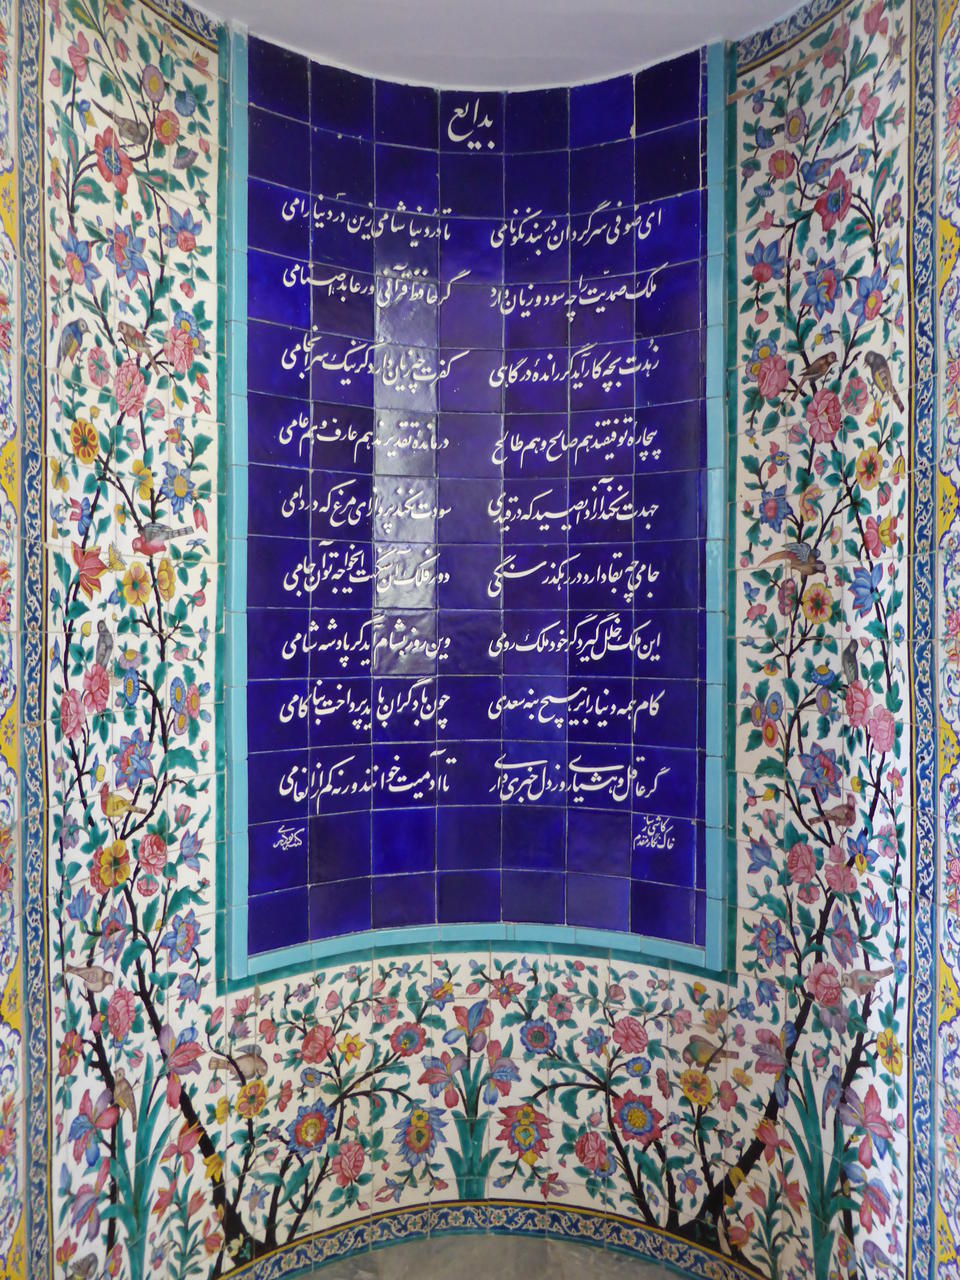 بدایع
ای صوفی سرگردان در بند نکونامی تا درد نیاشامی زین درد نیارامی
ملک صمدیت را چه سود و زیان دارد گر حافظ قرآنی ور عابد اصنامی
زهدت بچه کار آید گر رانده درگاهی کفرت چه زیان دارد گر نیک سرانجامی
بیچاره توفیقند هم صالح و هم طالح درمانده تقدیرند هم عارف و هم عامی
جهدت نکند آزاد ای صید که در قیدی سودت نکند پرواز ای مرغ که در دامی
جامی چه بقا دارد در رهگذر سنگی دور فلک آن سنگست ایخواجه تو آن جامی
این ملک خلل گیرد گر خود ملک رومی وین روز بشام آید گر پادشه شامی
کام همه دنیا را بر هیچ بنه سعدی چون با دگران باید پرداخت بناکامی
گر عاقل و هشیاری وز دل خبری داری تا آدمیت خوانند ورنه کم از انعامی
کاشی ساز
خاک نگار مقدم